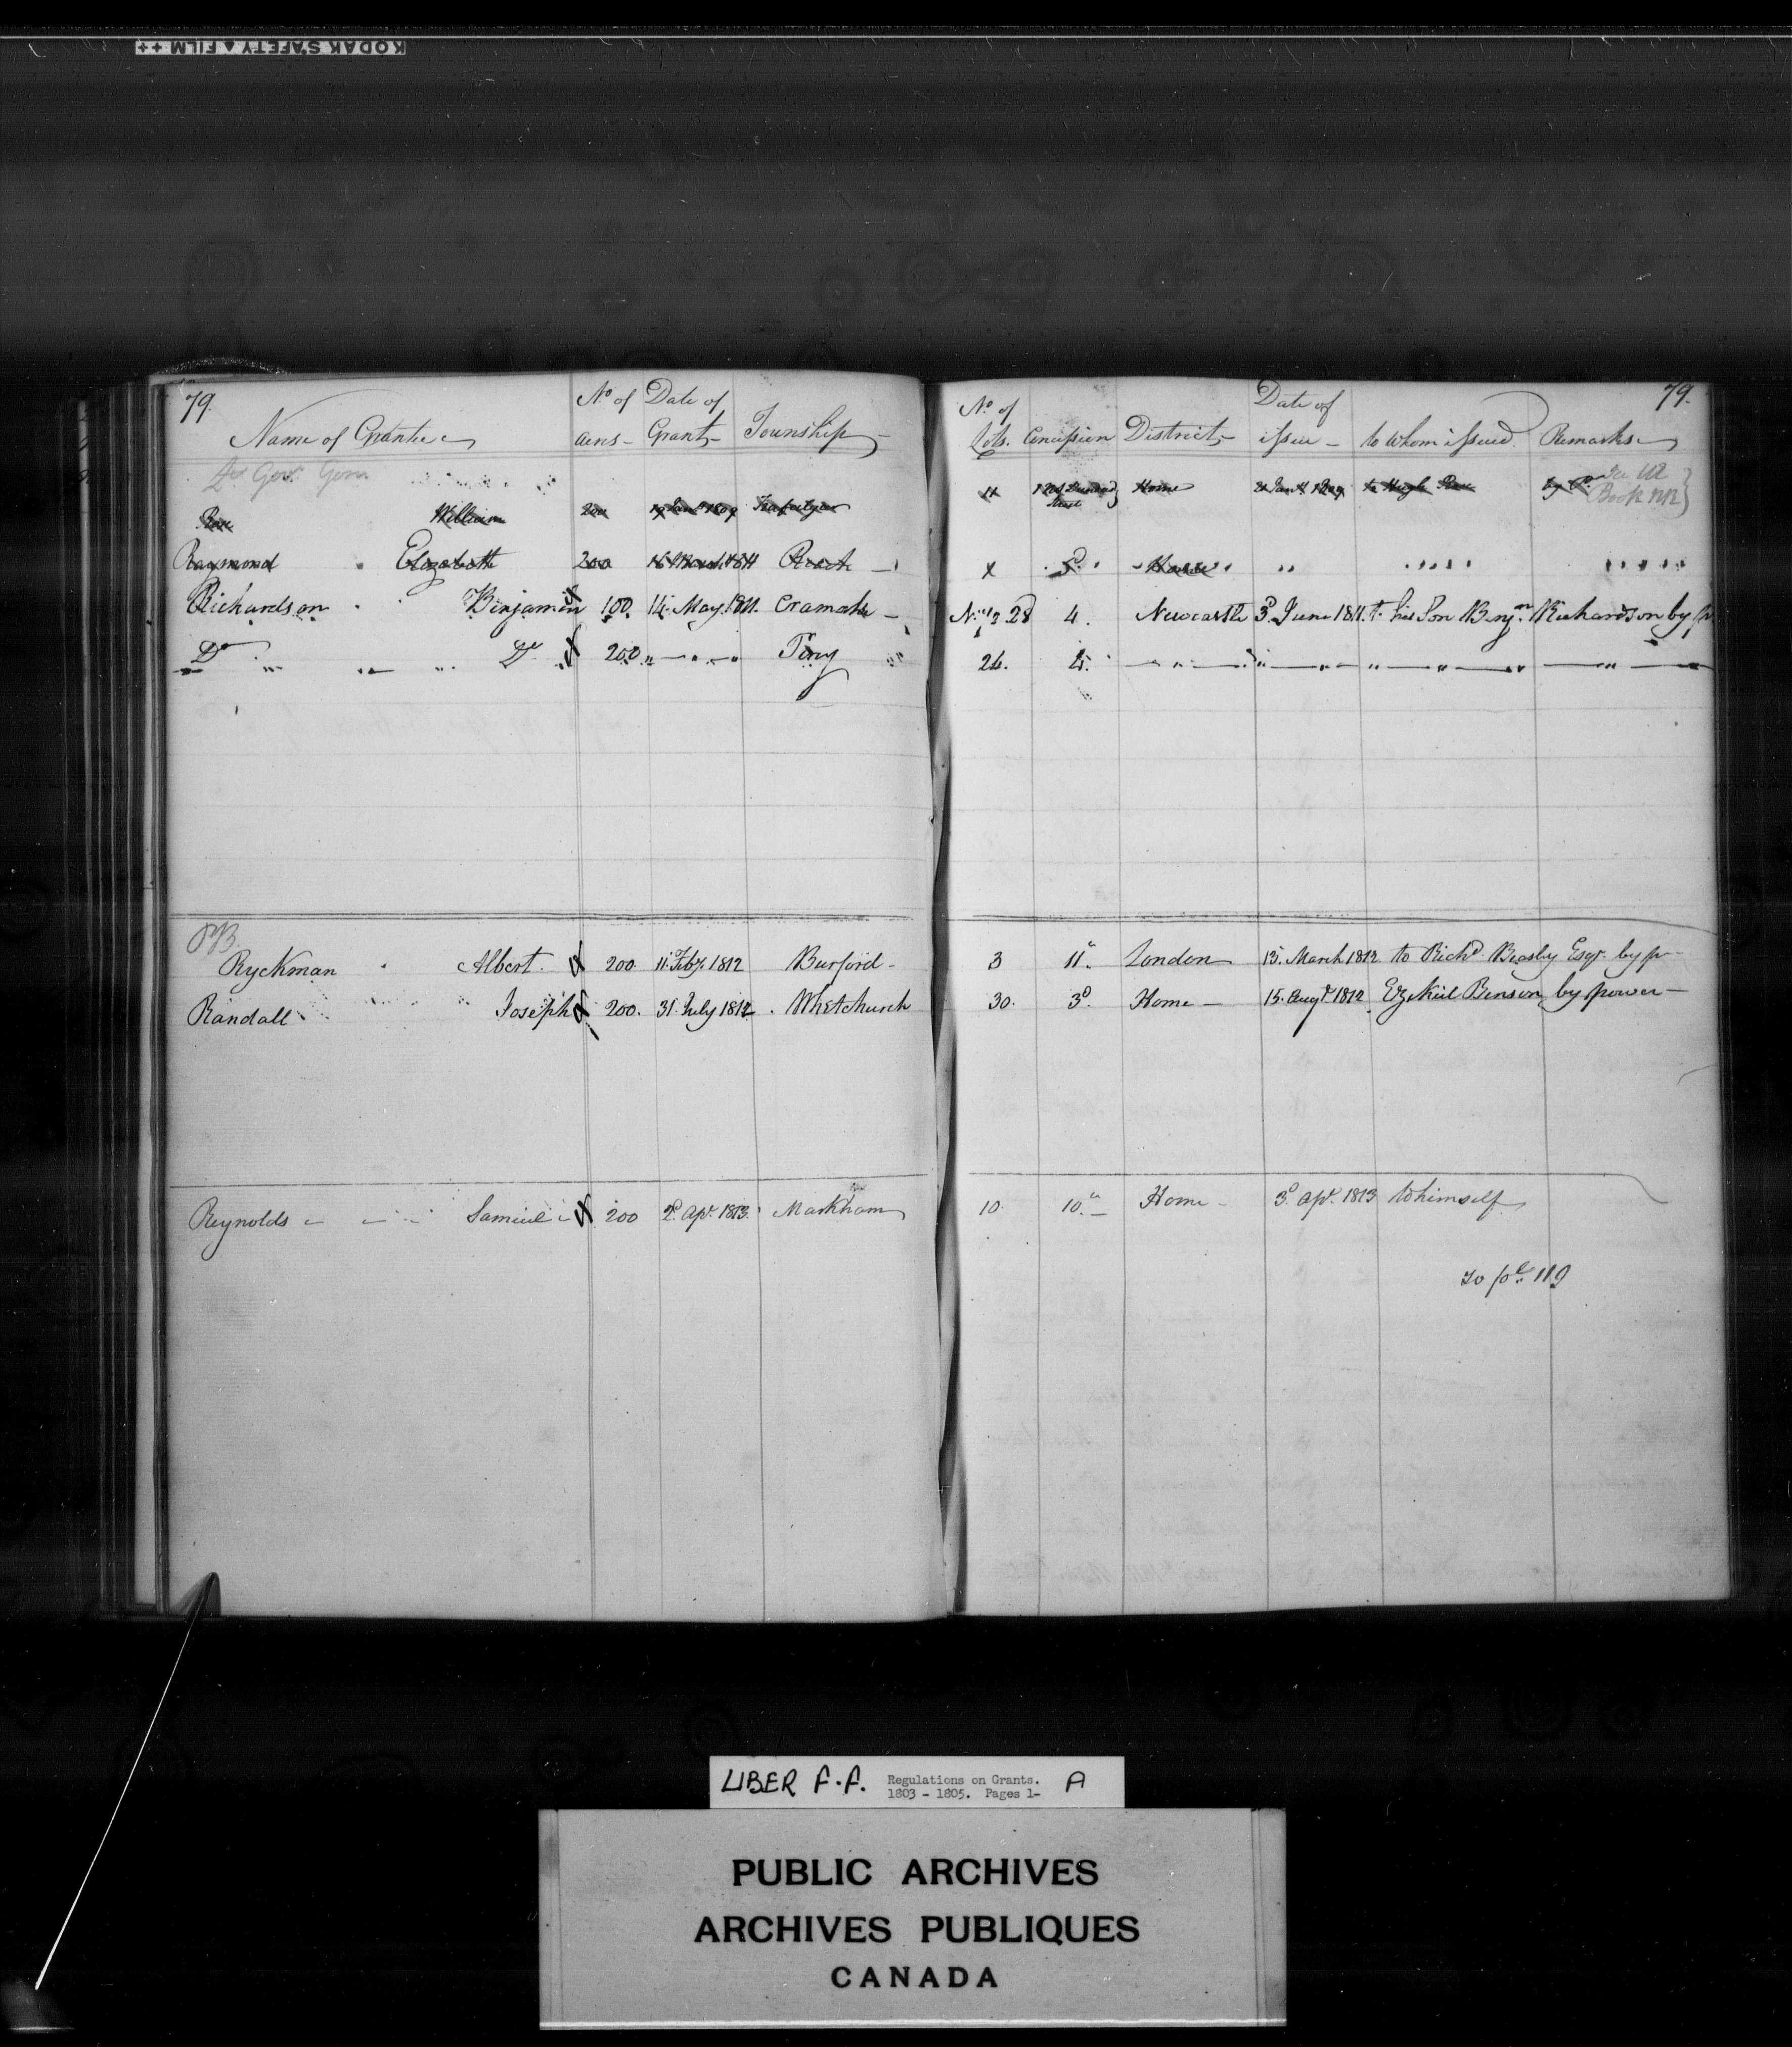 KODAK SAFETY FILM ++
79
Name of Grantee No. of acres Date of Grant Township
Lt. Gov. Gore
William 200 1809 Trafalgar
Raymond Elizabeth 200 16 March 1811 Reach
Richardson Benjamin 100. 14. May. 1811. Cramahe
Do Do 200. " " Percy
PB
Ryckman Albert. 200. 11. Feby. 1812 Burford
Randall Joseph 200. 31. July 1812 Whitchurch
Reynolds Samuel 200 2d. Apl. 1813. Markham
79.
No. of Lots. Concession District Date of issue to whom issued Remarks
11 Home 21 Jany. 1809 to Hugh by P. Book
x 5. Home " " "
No. 1/2 28 4. Newcastle 3d. June 1811. to his Son Benjn. Richardson by
24. 4. " " " "
3 11th. London 13. March 1812 to Richd. Beasley Esqr. by p
30. 3d. Home 15. Augt. 1812 Ezekiel Benson by power
10. 10th. Home 3d. Apl. 1813 to himself
to pge 119
LIBER F.F. Regulations on Grants. A
1803 - 1805. Pages 1-
PUBLIC ARCHIVES
ARCHIVES PUBLIQUES
CANADA